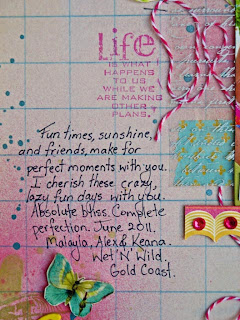 Life
IS WHAT
HAPPENS
TO US
WHILE WE
ARE MAKING
OTHER
PLANS.
Fun times, sunshine,
and friends, make for
perfect moments with you.
I cherish these crazy,
lazy fun days with you.
Absolute bliss. Complete
perfection. June 2011.
Malayla, Alex & Keana.
Wet 'N' Wild.
Gold Coast.